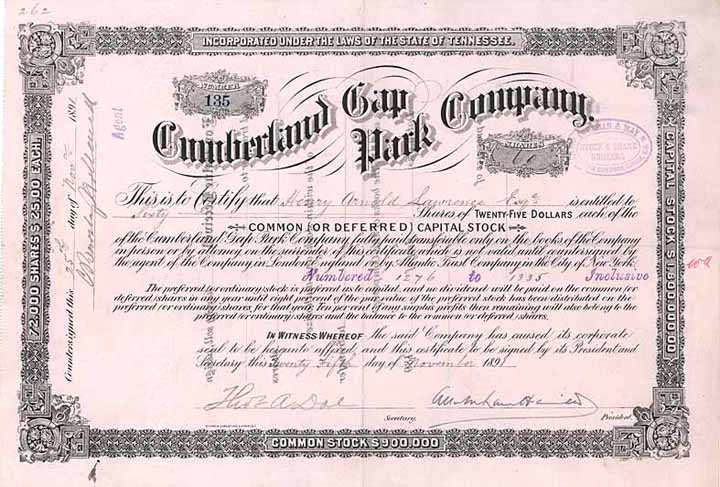 262
INCORPORATED UNDER THE LAWS OF THE STATE OF TENNESSEE.
NUMBER
135
SHARES
60
Cumberland Gap Park Company.
STOCK & SHARE
BROKERS
This is to Certify that Henry Arnold Lawrence Esqre is entitled to
Sixty Shares of TWENTY-FIVE DOLLARS each of the
COMMON (OR DEFERRED) CAPITAL STOCK
of the Cumberland Gap Park Company fully paid, transferable only on the books of the Company
in person or by attorney on the surrender of this certificate, which is not valid until countersigned by
the agent of the Company in London, England, or by Atlantic Trust Company in the City of New York.
Numbered 1276 to 1335 Inclusive
The preferred (or ordinary) stock is preferred as to capital, and no dividend will be paid on the common (or
deferred) shares in any year until eight per cent of the par value of the preferred stock has been distributed on the
preferred (or ordinary) shares for that year. Ten per cent of any surplus profits then remaining will also belong to the
preferred (or ordinary) shares and the balance to the common (or deferred) shares.
IN WITNESS WHEREOF the said Company has caused its corporate
seal to be hereunto affixed, and this certificate to be signed by its President and
Secretary this Twenty Fifth day of November 1891
Secretary.
President.
COMMON STOCK $900,000
72,000 SHARES $25.00 EACH.
CAPITAL STOCK $1,800,000.00
Countersigned this 25th day of Novr 1891
Agent